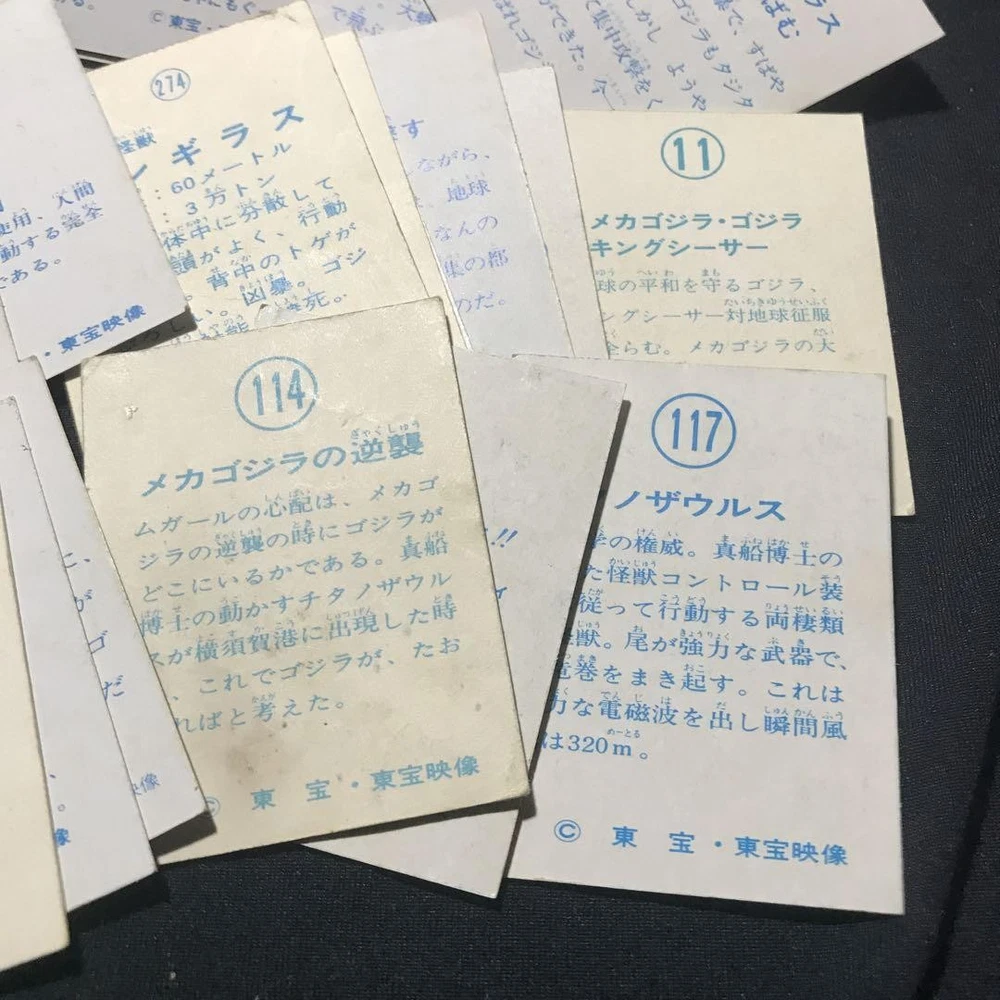 274
怪獣
ギラス
：60メートル
：3万トン
体中に分散して
頭がよく、行動
背中のトゲが
凶暴。ゴジ
死。
使用、人間
動する完全
である。
・東宝映像
© 東宝・
ながら、
、地球
なんの
集の都
めだ。
ラス
ばむ
で、すばや
ゴジラもタジタ
しかし ようや
集中攻撃をく
ができた。
11
メカゴジラ・ゴジラ
キングシーサー
球の平和を守るゴジラ、
ングシーサー対地球征服
らむ。メカゴジラの大
114
メカゴジラの逆襲
ムガールの心配は、メカゴ
ジラの逆襲の時にゴジラが
どこにいるかである。真船
博士の動かすチタノザウル
スが横須賀港に出現した時
、これでゴジラが、たお
ればと考えた。
© 東宝・東宝映像
!!
117
ノザウルス
学の権威。真船博士の
た怪獣コントロール装
従って行動する両棲類
獣。尾が強力な武器で、
竜巻をまき起す。これは
力な電磁波を出し瞬間風
は320m。
© 東宝・東宝映像